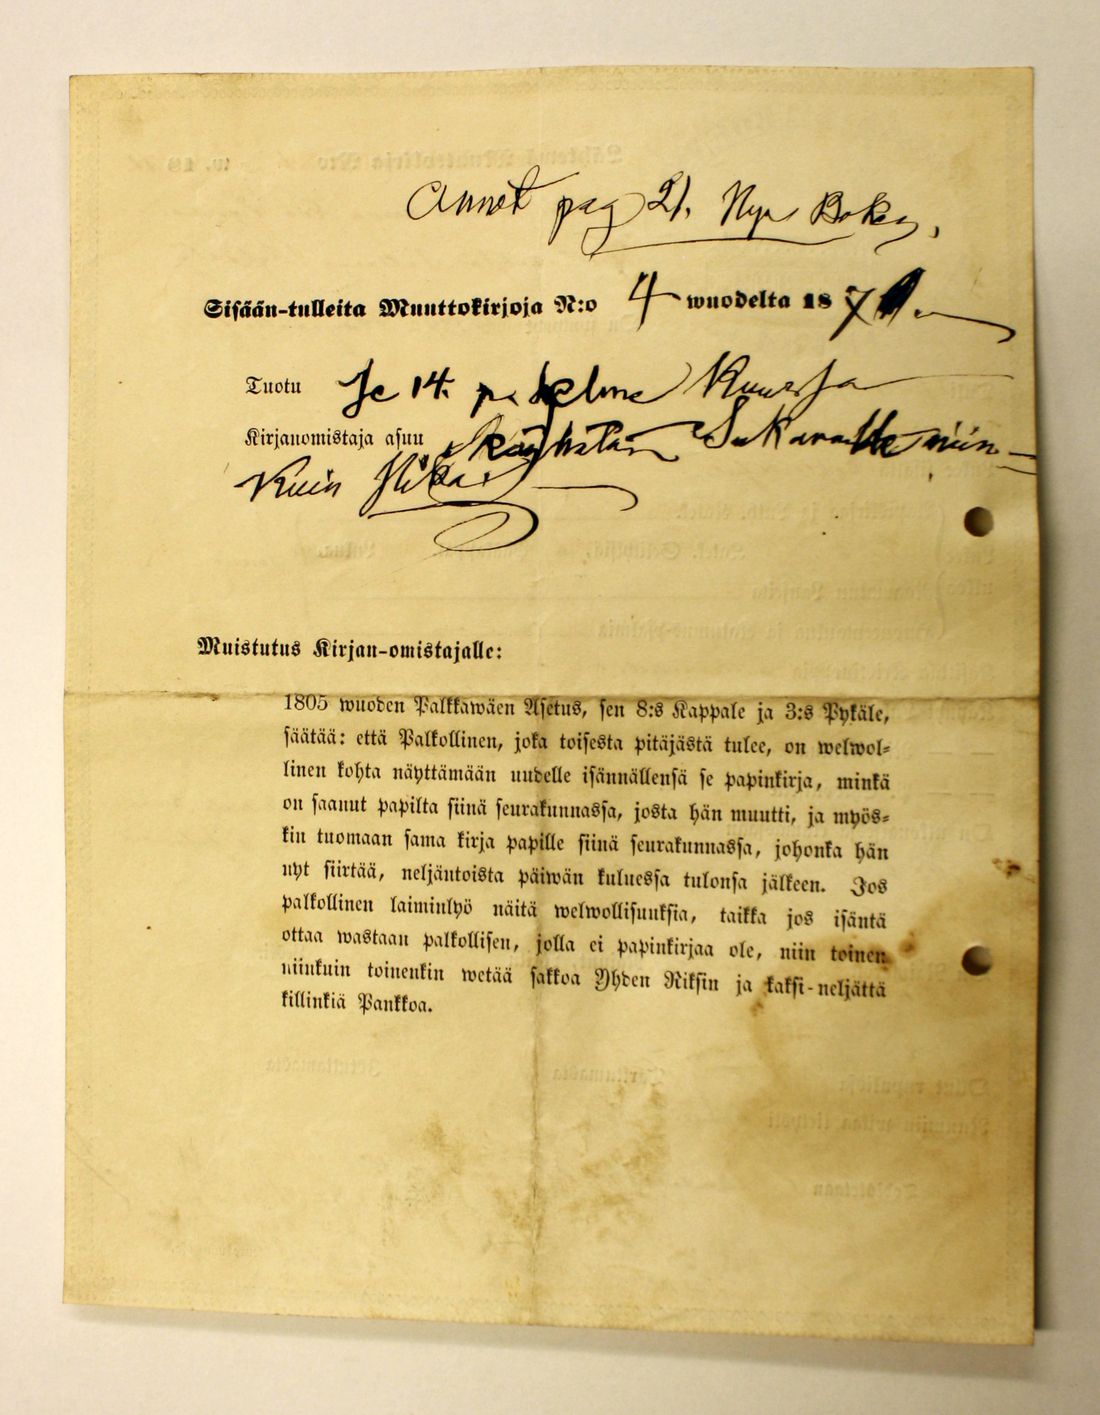 pag 21. Nya Boken,
Sisään-tulleita Muuttokirjoja N:o 4 wuodelta 187
Tuotu Je 14. p Kuussa
Kirjanomistaja asuu niin
kuin
Muistutus Kirjan-omistajalle:
1805 wuoden Palkkawäen Asetus, sen 8:s Kappale ja 3:s Pykäle,
säätää: että Palkollinen, joka toisesta pitäjästä tulee, on welwol-
linen kohta näyttämään uudelle isännällensä se papinkirja, minkä
on saanut papilta siinä seurakunnassa, josta hän muutti, ja myös-
kin tuomaan sama kirja papille siinä seurakunnassa, johonka hän
nyt siirtää, neljäntoista päiwän kuluessa tulonsa jälkeen. Jos
palkollinen laiminlyö näitä welwollisuuksia, taikka jos isäntä
ottaa wastaan palkollisen, jolla ei papinkirjaa ole, niin toinen
niinkuin toinenkin wetää sakkoa Yhden Riksin ja kaksi-neljättä
killinkiä Pankkoa.